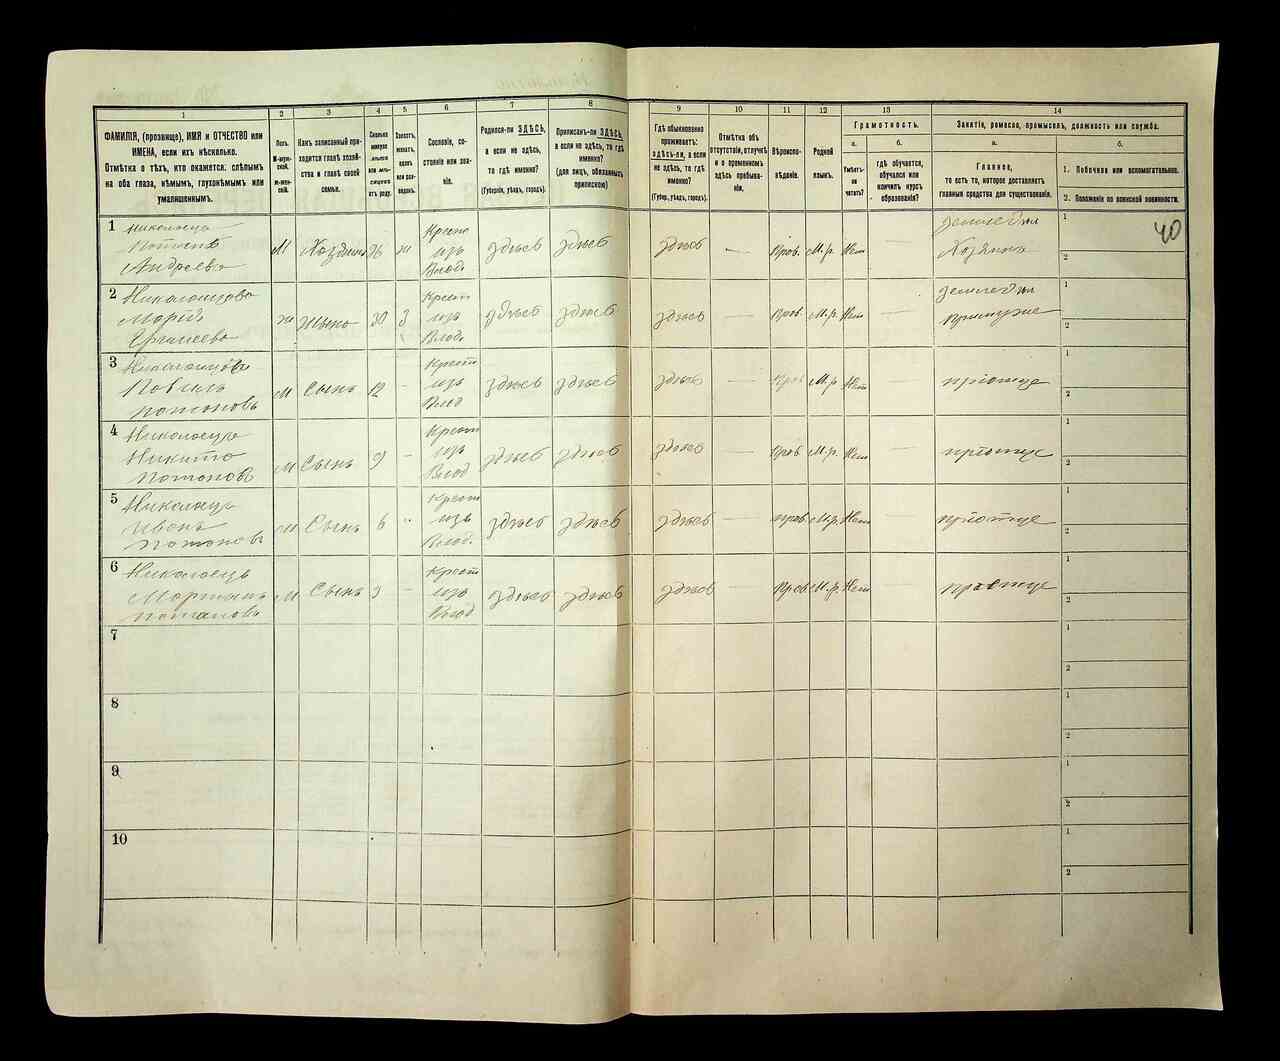 1
2
3
4
5
6
7
8
9
10
11
12
13
14
ФАМИЛІЯ, (прозвище), ИМЯ и ОТЧЕСТВО или
ИМЕНА, если ихъ нѣсколько.
Отмѣтка о тѣхъ, кто окажется: слѣпымъ
на оба глаза, нѣмымъ, глухонѣмымъ или
умалишеннымъ.
Полъ.
М-муж-
ской.
ж-жен-
скій.
Какъ записанный при-
ходится главѣ хозяй-
ства и главѣ своей
семьи.
Сколько
минуло
лѣтъ
или мѣ-
сяцевъ
отъ роду.
Холостъ,
женатъ,
вдовъ
или раз-
веденъ.
Сословіе, со-
стояніе или зва-
ніе.
Родился-ли ЗДѢСЬ,
а если не здѣсь,
то гдѣ именно?
(Губернія, уѣздъ, городъ).
Приписанъ-ли ЗДѢСЬ,
а если не здѣсь, то гдѣ
именно?
(для лицъ, обязанныхъ
припискою)
Гдѣ обыкновенно
проживаетъ:
здѣсь-ли, а если
не здѣсь, то гдѣ
именно?
(Губер., уѣздъ, городъ).
Отмѣтка объ
отсутствіи, отлучкѣ
и о временномъ
здѣсь пребыва-
ніи.
Вѣроиспо-
вѣданіе.
Родной
языкъ.
Грамотность.
а.
Умѣетъ-
ли
читать?
б.
гдѣ обучается,
обучался или
кончилъ курсъ
образованія?
Занятіе, ремесло, промыселъ, должность или служба.
а.
Главное,
то есть то, которое доставляетъ
главныя средства для существованія.
б.
1. Побочное или вспомогательное.
2. Положеніе по воинской повинности.
40
1
Андреевъ
М Хозяинъ
Крест
изъ
Влад
здѣсь здѣсь здѣсь — Прав. М.р. Нет —
Хозяинъ
1
2
2
Марія
ж жена 30 з
Крест
изъ
Влад.
здѣсь здѣсь здѣсь — Прав М.р. Нет —
1
2
3
Павелъ
Потаповъ
м Сынъ 12 —
Крест
изъ
Влад
здѣсь здѣсь здѣсь — Прав М.р. Нет —
приотце
1
2
4
Никита
Потаповъ
м Сынъ 9 —
Крест
изъ
Влад
здѣсь здѣсь здѣсь — Прав М.р. Нет —
приотце
1
2
5
Иванъ
Потаповъ
м Сынъ 6
Крест
изъ
Влад.
здѣсь здѣсь здѣсь — прав М.р. Нет —
приотце
1
2
6
Мартынъ
Потаповъ
м Сынъ 3 —
Крест
изъ
Влад
здѣсь здѣсь здѣсь — Прав М.р. Нет —
приотце
1
2
7
1
2
8
1
2
9
1
2
10
1
2